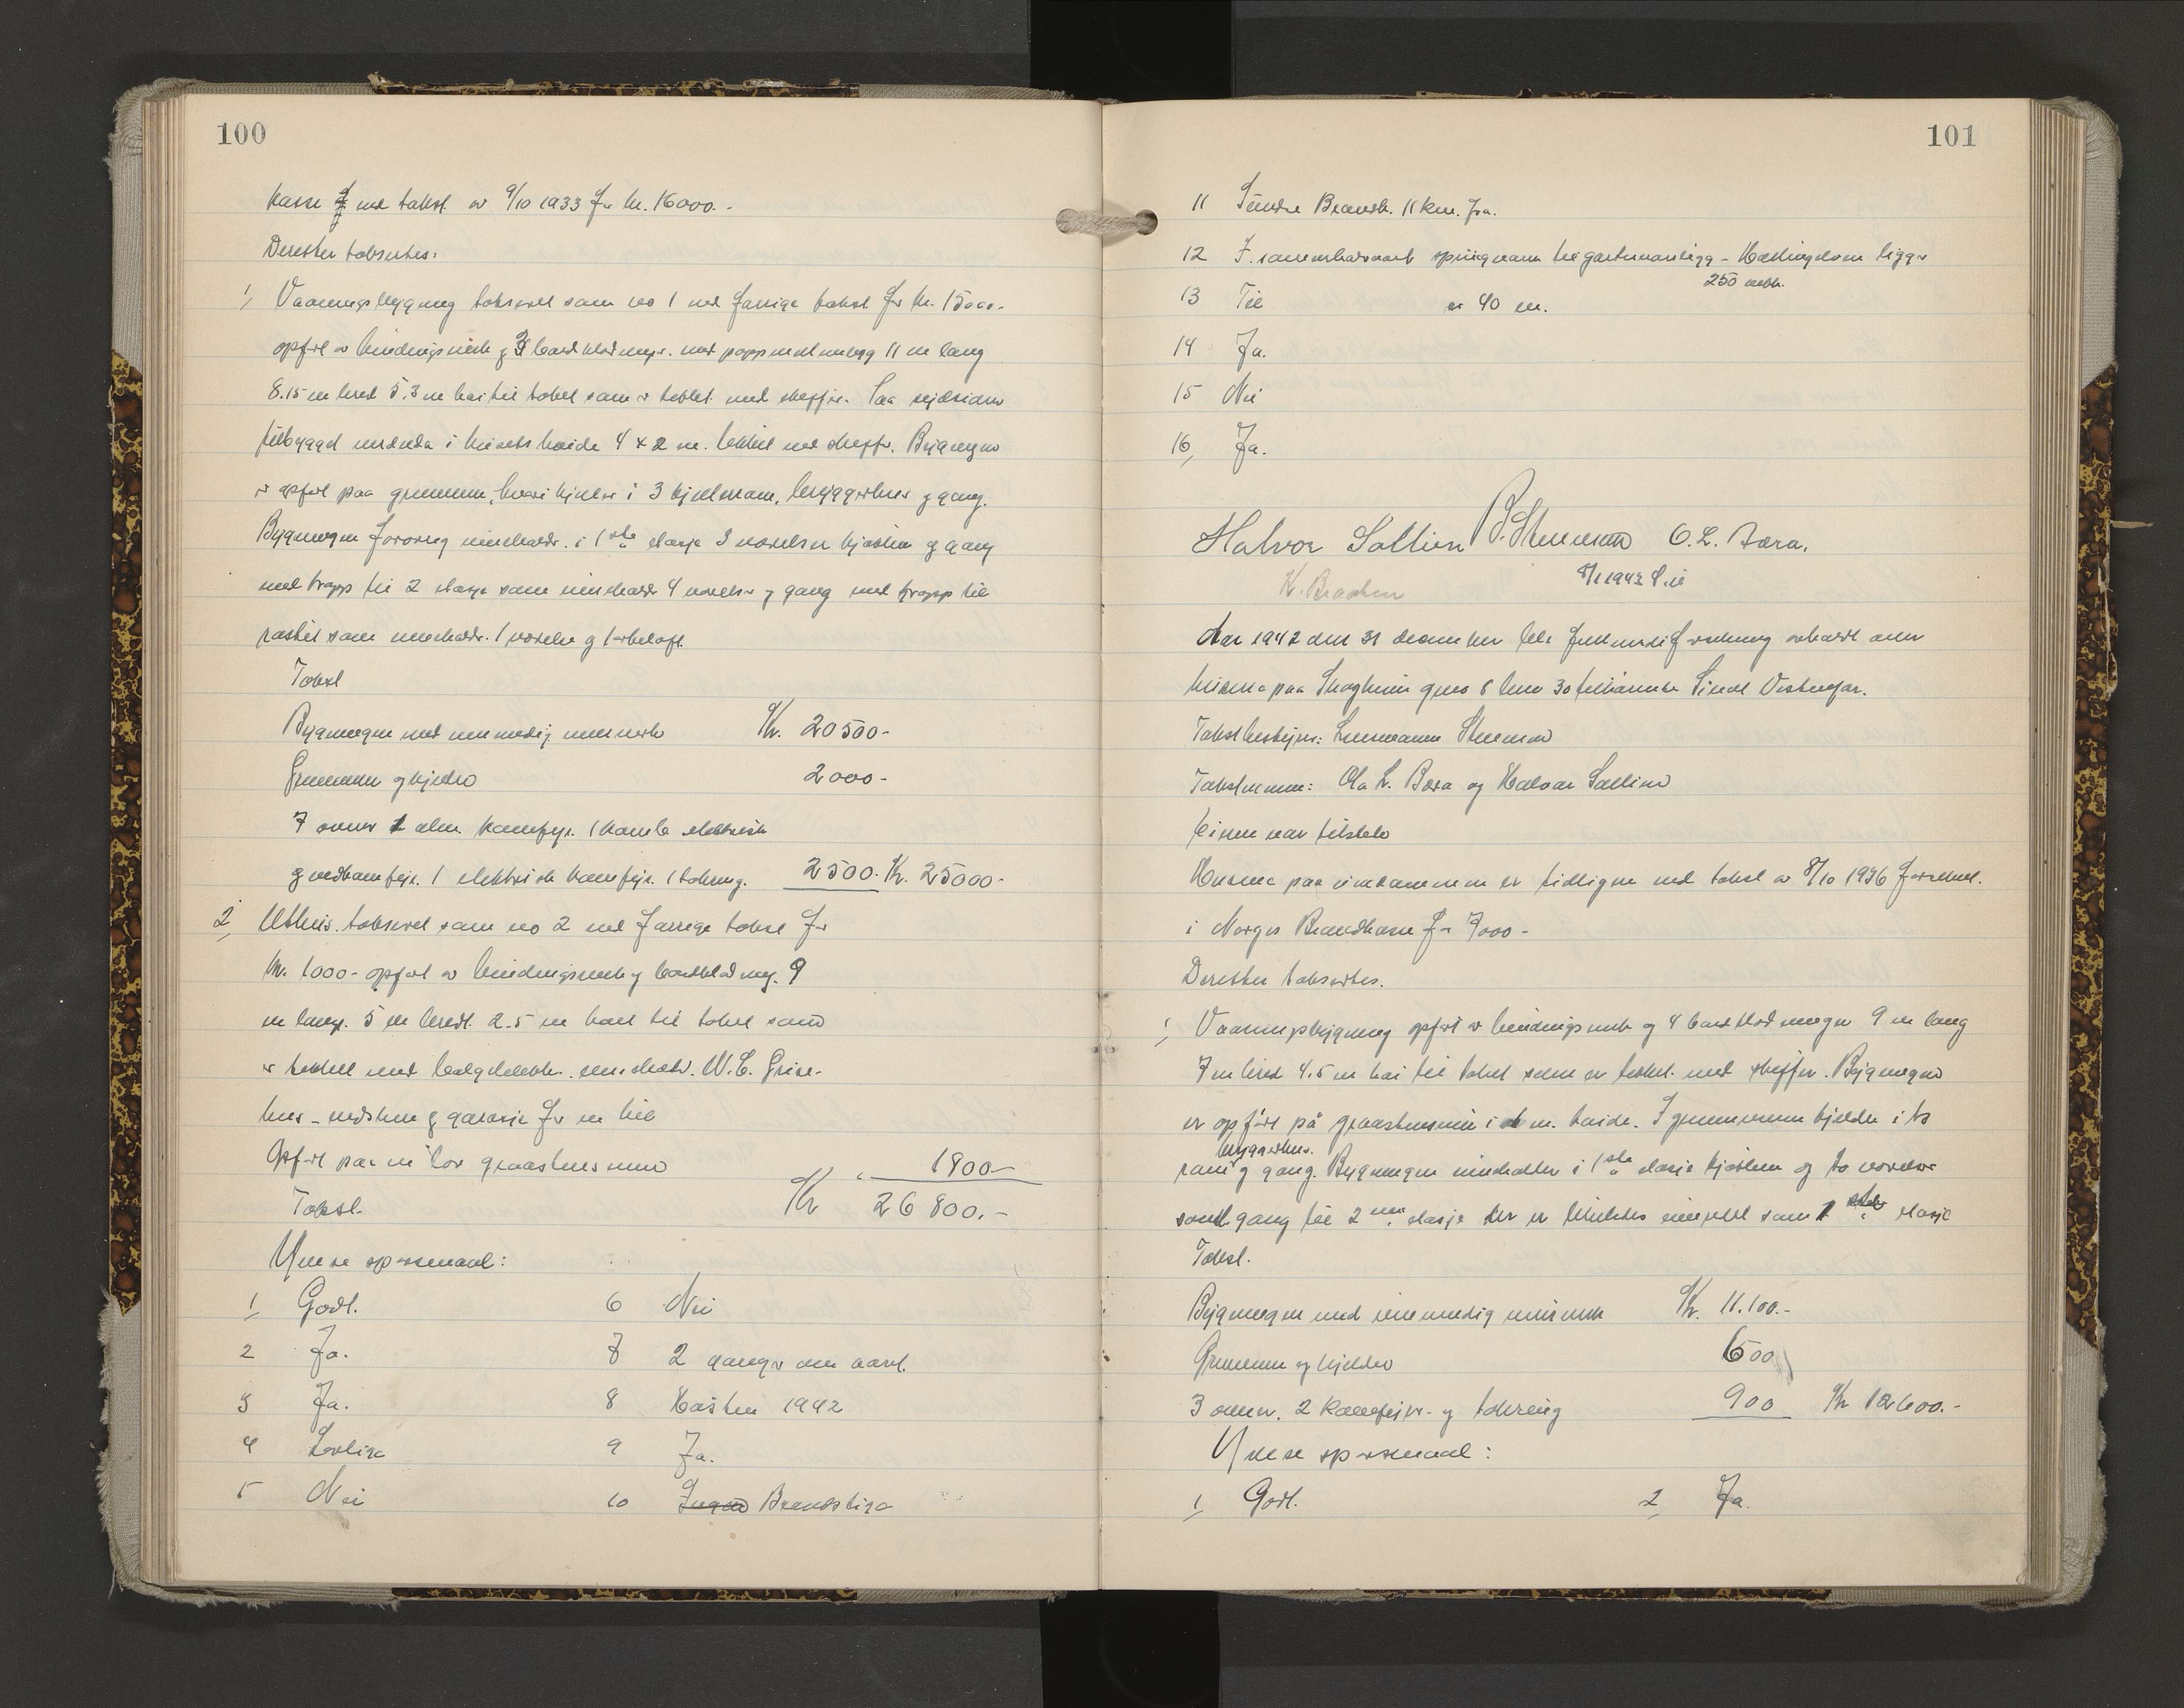 100
kasse ved takst av 9/10 1933 for kr. 16000.-
Derefter takseres:
1, Vaaningsbygning taksert som no 1 ved forrige takst for kr. 15000.-
opført av bindingsverk g 3 bordkledninger. med pappmellemlegg 11 m lang
8.15 m bred 5.3 m høi til taket som er tekket med skeffer. Paa
tilbygget veranda i høide 4 x 2 m. tekket med skeffer. Bygningen
er opført paa grunnmur, hvori kjeller i 3 kjellerrum, bryggerhus g gang.
Bygningen forøvrig inneholder i 1ste etasje 3 værelser kjøkken g gang
med trapp til 2 etasje som inneholder 4 værelser g gang med trapp til
loftet som inneholder 1 værelse g mørkeloft.
Takst
Bygningen med innvendig murverk Kr. 20500-
Grunnmur g kjeller 2000-
7 ovner 1 alm. komfyr. 1 komb. elektrisk
g vedkomfyr. 1 elektrisk komfyr. 1 takrenne. 2500. Kr. 25000-
2, Uthus. taksert som no 2 ved forrige takst for
Kr. 1000- opført av bindingsverk g bordkledning. 9
m lang. 5 m bred. 2.5 m høi til taket som
er tekket med inneholder. W.C. Grise-
hus - vedskur g garasje for en bil
Opført paa en lav graastensmur " 1800-
Takst. Kr 26800.-
Ymse spørsmaal:
1, Godt. 6 Nei
2 Ja. 7 2 ganger om aaret.
3 Ja. 8 Høsten 1942
4 Lovlige 9 Ja.
5 Nei 10 Ingen Brandstige
101
11 Søndre Brandst. 11 km. fra.
12 I sommerhalvaaret springvann til - Hallingelven ligger
250 mtr.
13 Til er 40 m.
14 Ja.
15 Nei
16, Ja.
Halvor Sollien P. Stenersen O. L. Bæra.
K. Braaten 8/1 1943
Aar 1942 den 31 desember ble fullverdiforsikring avholdt over
husene paa Skogheim gno 6 bno 30 tilhørende Einar
Takstbestyrer: Lensmann Stenersen
Takstmenn: Ola L. Bæra og Halvor Sollien
Eieren var tilstede
Husene paa eiendommen er tidligere ved takst av 8/10 1936 forsikret.
i Norges Brandkasse for 7000-
Derefter takseres.
1, Vaaningsbygning opført av bindingsverk og 4 bordkledninger 9 m lang
7 m bred 4.5 m høi til taket som er tekket med skiffer. Bygningen
er opført på graastensmur i 1 m. høide. I grunnmuren kjeller i to
bryggerhus.
rum g gang. Bygningen inneholder i 1ste etasje kjøkken og to værelser
samt gang til 2nn. etasje der er likeledes innredet som 1 ste etasje
Takst.
Bygningen med innvendig murverk Kr. 11.100.-
Grunnmur og kjeller 600
3 ovner. 2 komfyrer g takrenne 900 Kr 12600.-
Ymse spørsmaal:
1, Godt. 2, Ja.